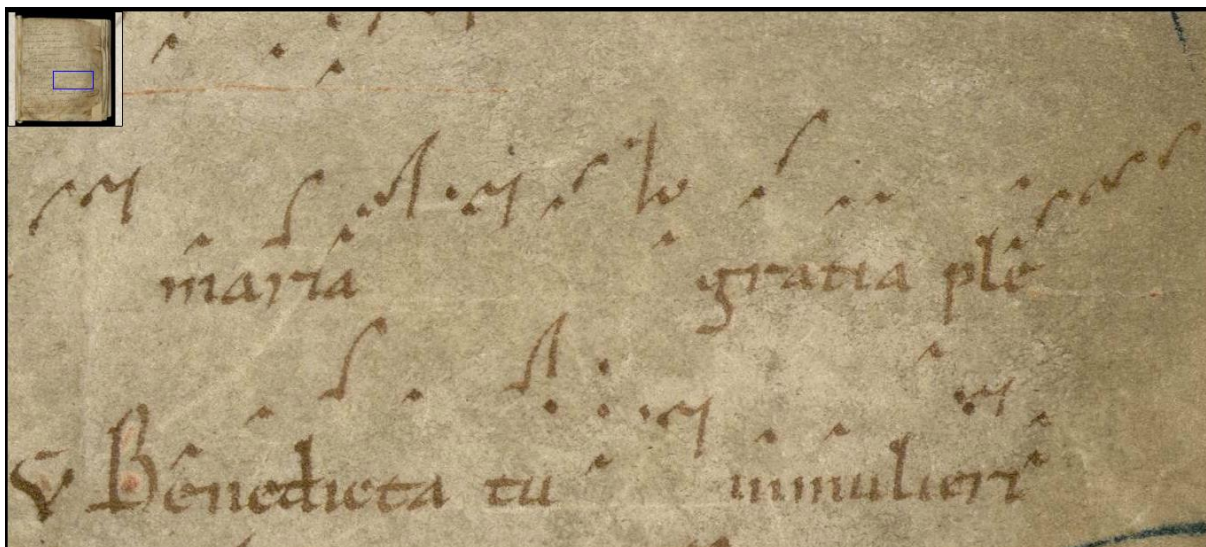 maria gratia ple
V Benedicta tu inmulieri